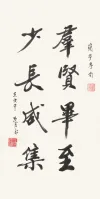 蘭亭序句
羣賢畢至
少長咸集